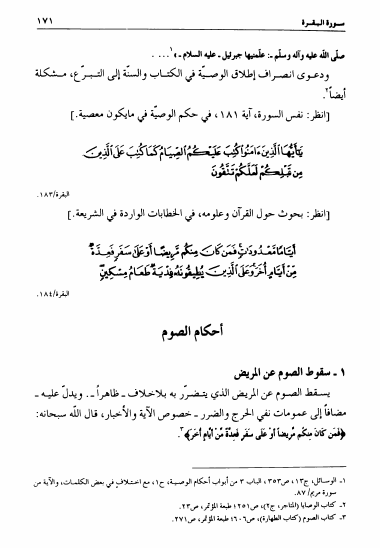 سورة البقرة ١٧١
صلّى الله عليه وآله وسلّم ـ: علّمنيها جبرئيل ـ عليه السلام ـ»١... .
ودعوى انصراف إطلاق الوصيّة في الكتاب والسنّة إلى التبرّع، مشكلة
أيضاً٢.
[انظر: نفس السورة، آية ١٨١، في حكم الوصيّة في مايكون معصية.]
يَٰٓأَيُّهَا ٱلَّذِينَ ءَامَنُوا۟ كُتِبَ عَلَيْكُمُ ٱلصِّيَامُ كَمَا كُتِبَ عَلَى ٱلَّذِينَ
مِن قَبْلِكُمْ لَعَلَّكُمْ تَتَّقُونَ
البقرة/١٨٣.
[انظر: بحوث حول القرآن وعلومه، في الخطابات الواردة في الشريعة.]
أَيَّامًا مَّعْدُودَٰتٍ فَمَن كَانَ مِنكُم مَّرِيضًا أَوْ عَلَىٰ سَفَرٍ فَعِدَّةٌ
مِّنْ أَيَّامٍ أُخَرَ وَعَلَى ٱلَّذِينَ يُطِيقُونَهُۥ فِدْيَةٌ طَعَامُ مِسْكِينٍ
البقرة/١٨٤.
أحكام الصوم
١ ـ سقوط الصوم عن المريض
يسقط الصوم عن المريض الذي يتضرّر به بلاخلاف ـ ظاهراً ـ. ويدلّ عليه ـ
مضافاً إلى عمومات نفي الحرج والضرر ـ خصوص الآية والأخبار، قال الله سبحانه:
﴿فَمَن كَانَ مِنكُم مَّرِيضاً أَوْ عَلَىٰ سَفَرٍ فَعِدَّةٌ مِّنْ أَيَّامٍ أُخَرَ﴾٣.
١ـ الوسائل، ج١٣، ص٣٥٣، الباب ٣ من أبواب أحكام الوصية، ح١، مع اختلاف في بعض الكلمات، والآية من
سورة مريم/ ٨٧.
٢ـ كتاب الوصايا (المتاجر، ج٢)، ص٢٥١؛ طبعة المؤتمر، ص٢٣.
٣ـ كتاب الصوم (كتاب الطهارة)، ص٦٠٦؛ طبعة المؤتمر، ص٢٧١.